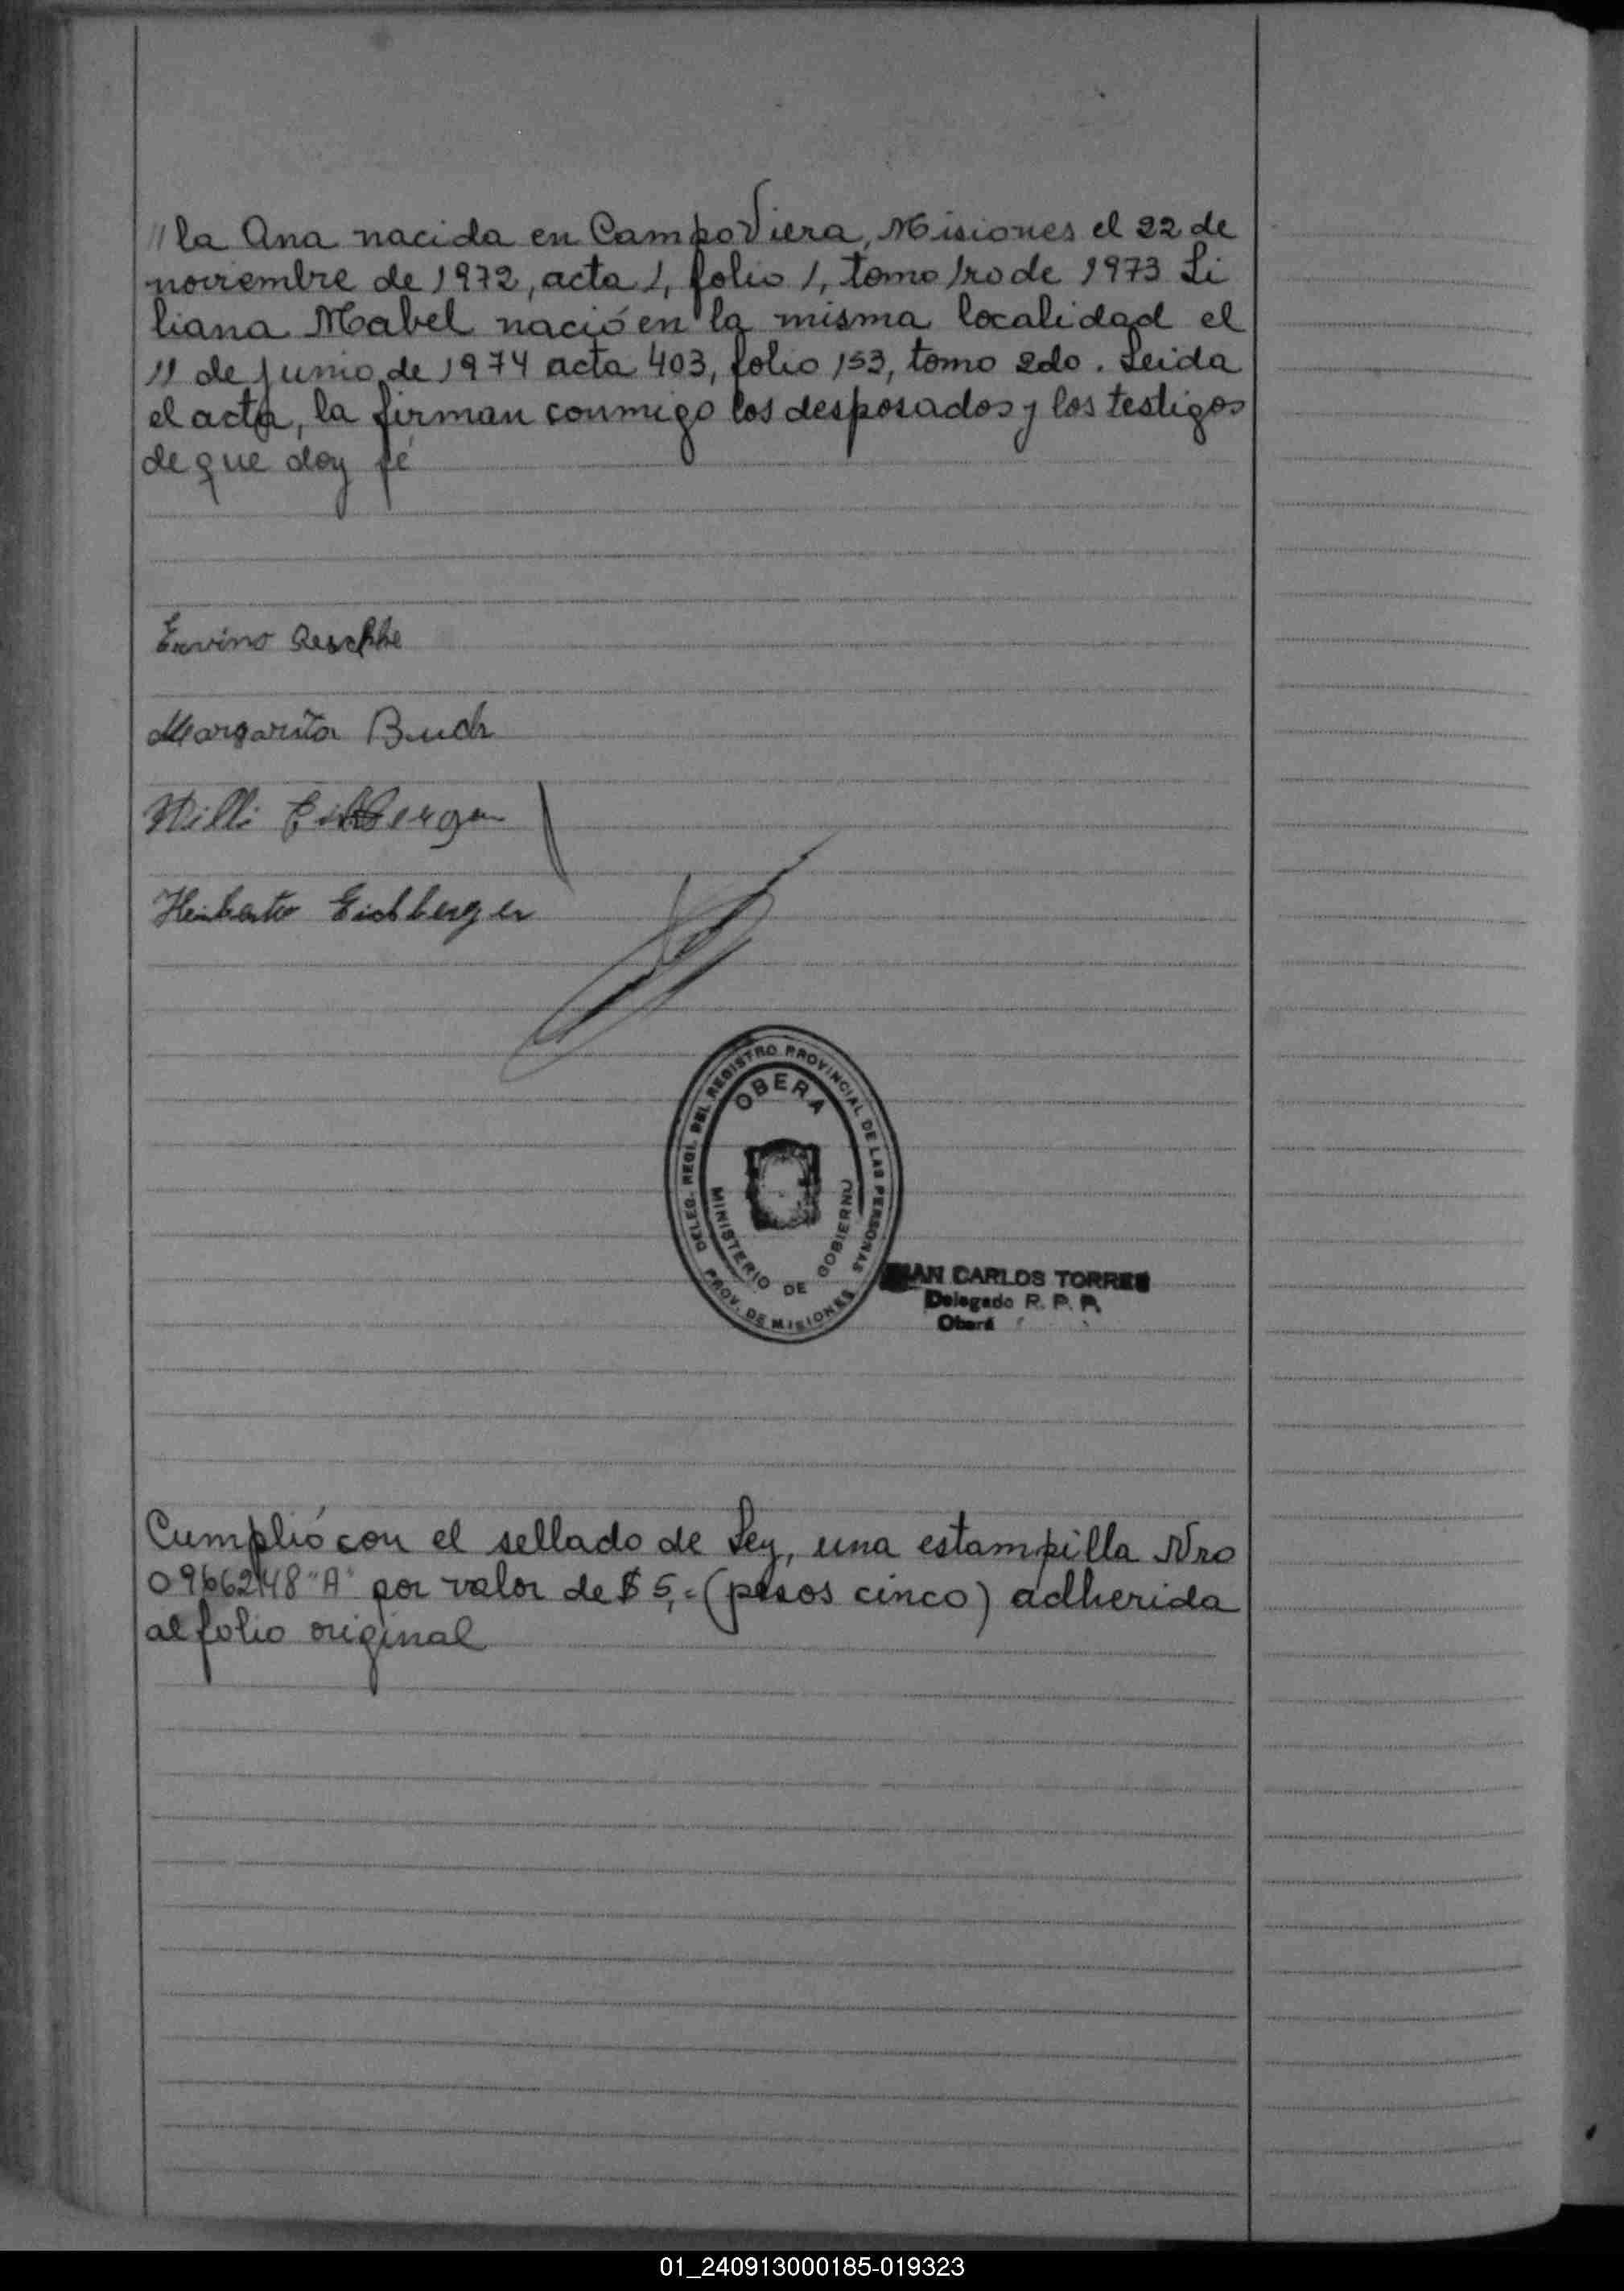 //la Ana nacida en Campo Viera, Misiones el 22 de
noviembre de 1972, acta 1, folio 1, tomo 1ro de 1973 Li
liana Mabel nació en la misma localidad el
11 de junio de 1974 acta 403, folio 153, tomo 2do. Leida
el acta, la firman conmigo los desposados y los testigos
de que doy fé
Ervino Reschke
Margarita Buch
Willi
Heriberto Eichberger
DELEG. REGI. DEL REGISTRO PROVINCIAL DE LAS PERSONAS
OBERA
MINISTERIO DE GOBIERNO
PROV. DE MISIONES
JUAN CARLOS TORRES
Delegado R. P. P.
Oberá
Cumplió con el sellado de Ley, una estampilla Nro
0966248 "A" por valor de $ 5,= (pesos cinco) adherida
al folio original
01_240913000185-019323